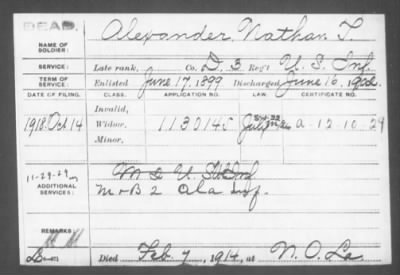 DEAD.
Alexander, Nathan T.
NAME OF SOLDIER:
SERVICE: Late rank, Co. D. 3 Reg't U. S. Inf.
TERM OF SERVICE: Enlisted June 17, 1899 Discharged June 16, 1902
DATE OF FILING. CLASS. APPLICATION NO. LAW. CERTIFICATE NO.
Invalid,
1918. Oct 14 Widow, 1130145 a-12-10-29
Minor,
11-29-29
ADDITIONAL SERVICES:
M & B 2 Ala Inf.
REMARKS
Died Feb 7, 1914, at N. O. La